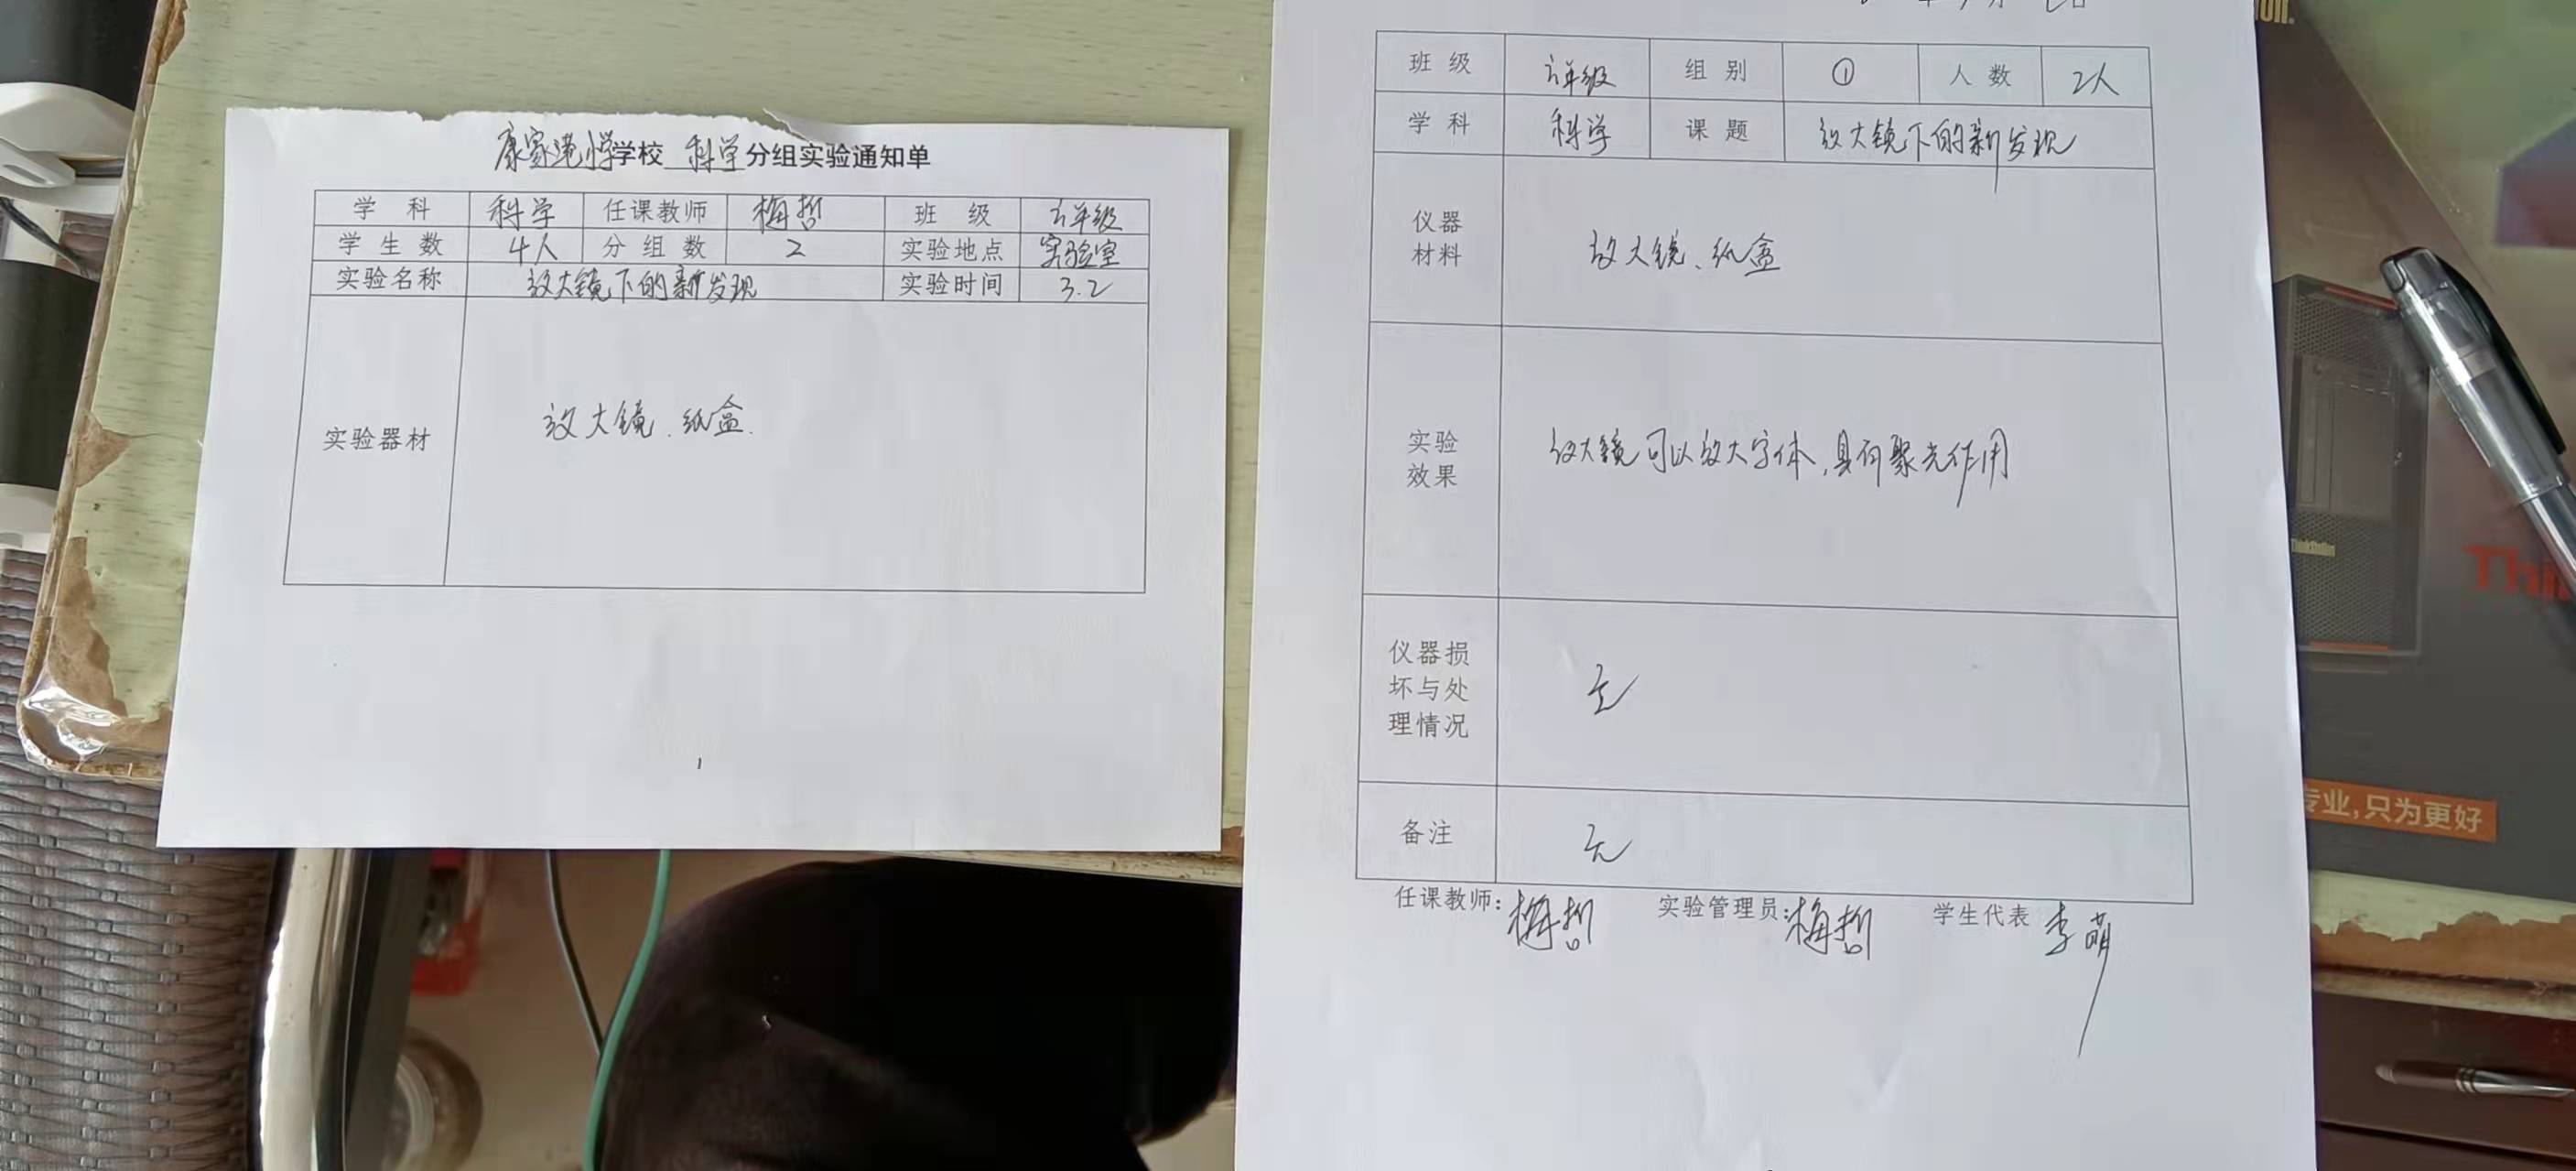 康家港小学学校 科学 分组实验通知单
学 科 科学 任课教师 梅哲 班 级 六年级
学生数 4人 分组数 2 实验地点 实验室
实验名称 放大镜下的新发现 实验时间 3.2
实验器材 放大镜、纸盒.
班级 六年级 组别 ① 人数 2人
学科 科学 课题 放大镜下的新发现
仪器
材料
放大镜、纸盒
实验
效果
放大镜可以放大字体,具有聚光作用
仪器损
坏与处
理情况
无
备注 无
任课教师:梅哲 实验管理员:梅哲 学生代表 李萌
ThinkStation
Thin
专业,只为更好